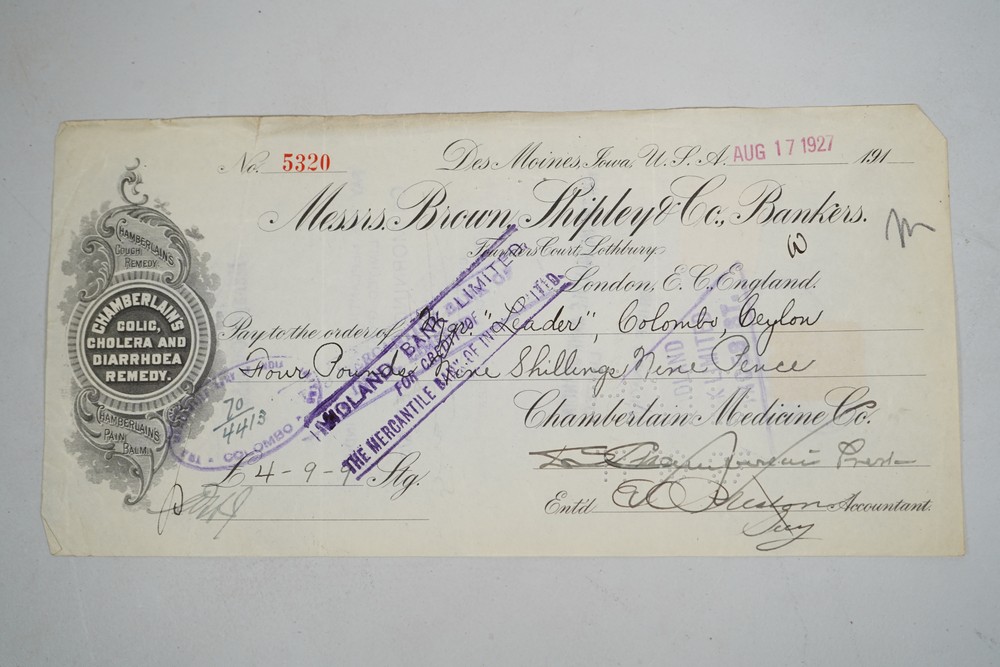 No. 5320
Des Moines, Iowa, U.S.A. AUG 17 1927 191
Messrs. Brown, Shipley & Co., Bankers.
Founders Court, Lothbury,
London, E.C., England.
W
M
Pay to the order of "Leader", Colombo, Ceylon
Four Pounds Nine Shillings Nine Pence
Chamberlain Medicine Co.
Prest
£4-9-9 Stg.
Ent'd Accountant.
CHAMBERLAIN'S
COUGH
REMEDY
CHAMBERLAIN'S
COLIC,
CHOLERA AND
DIARRHOEA
REMEDY.
CHAMBERLAIN'S
PAIN
BALM
70
4413
COLOMBO
MIDLAND BANK LIMITED
FOR CREDIT OF
THE MERCANTILE BANK OF INDIA LIMITED